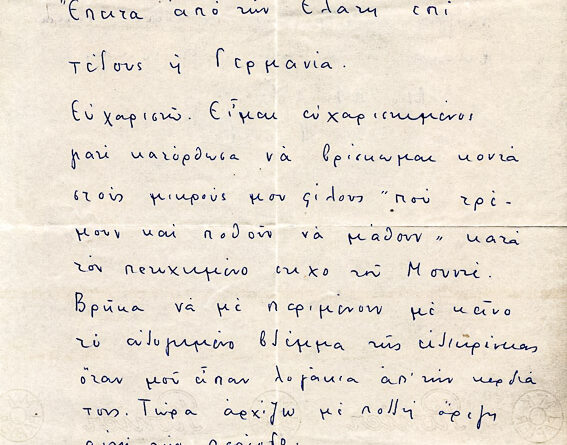 Ἔπειτα ἀπό τήν Ἐλάτη ἐπί
τέλους ἡ Γερμανία.
Εὐχαριστῶ. Εἶμαι εὐχαριστημένος
γιατί κατόρθωσα νά βρίσκωμαι κοντά
στούς μικρούς μου φίλους "πού τρέ-
μουν καί ποθοῦν νά μάθουν" κατά
τόν πετυχημένο στίχο τοῦ Μουντέ.
Βρῆκα νά μέ περιμένουν μέ κεῖνο
τό εὐλογημένο βλέμμα τῆς εἰλικρίνειας
ὅταν μοῦ εἶπαν λογάκια ἀπ' τήν καρδιά
τους. Τώρα ἀρχίζω μέ πολλή ὄρεξη